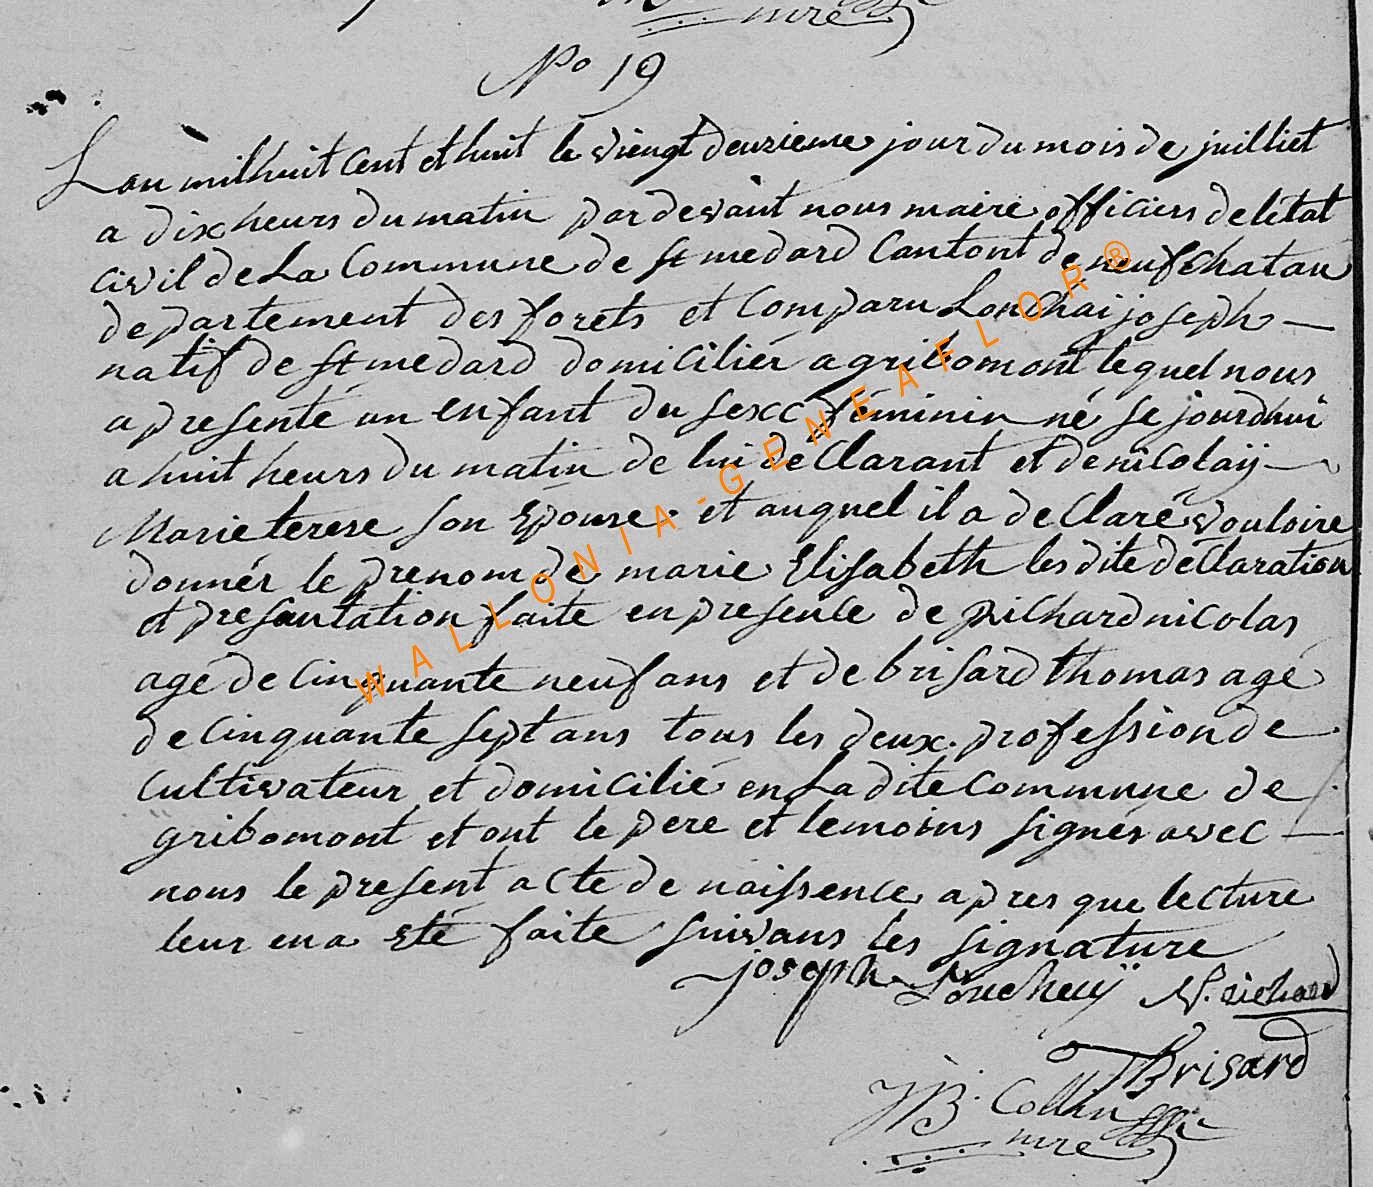 mre
No 19
Lan mil huit cent et huit le viengt deuzieme jour du mois de juilliet
a dix heurs du matin par devant nous maire officiers de letat
civil de La Commune de st medard Cantont de neufchatau
departement des forets et Comparu Lonchaij joseph
natif de st medard domiciliér a gribomont lequel nous
a presenté un enfant du sexc féminin né se jourdhui
a huit heurs du matin de lui déClarant et de nicolaij
Marie terese son Epouse. et auquel il a deClaré vouloire
donnér le prenom de marie Elisabeth les dite déClaration
et presantation faite en presence de richard nicolas
agé de cinquante neuf ans et de brisard thomas agé
de cinquante sept ans tous les deux profession de
cultivateur et domicilié en La dite commune de
gribomont et ont le pere et temoins signés avec
nous le present acte de naissence apres que lecture
leur en a eté faite suivans les signature
joseph Loncheuÿ N. richard
T Brisard
JB. Collin
mre
WALLONIA-GENEAFLOR®